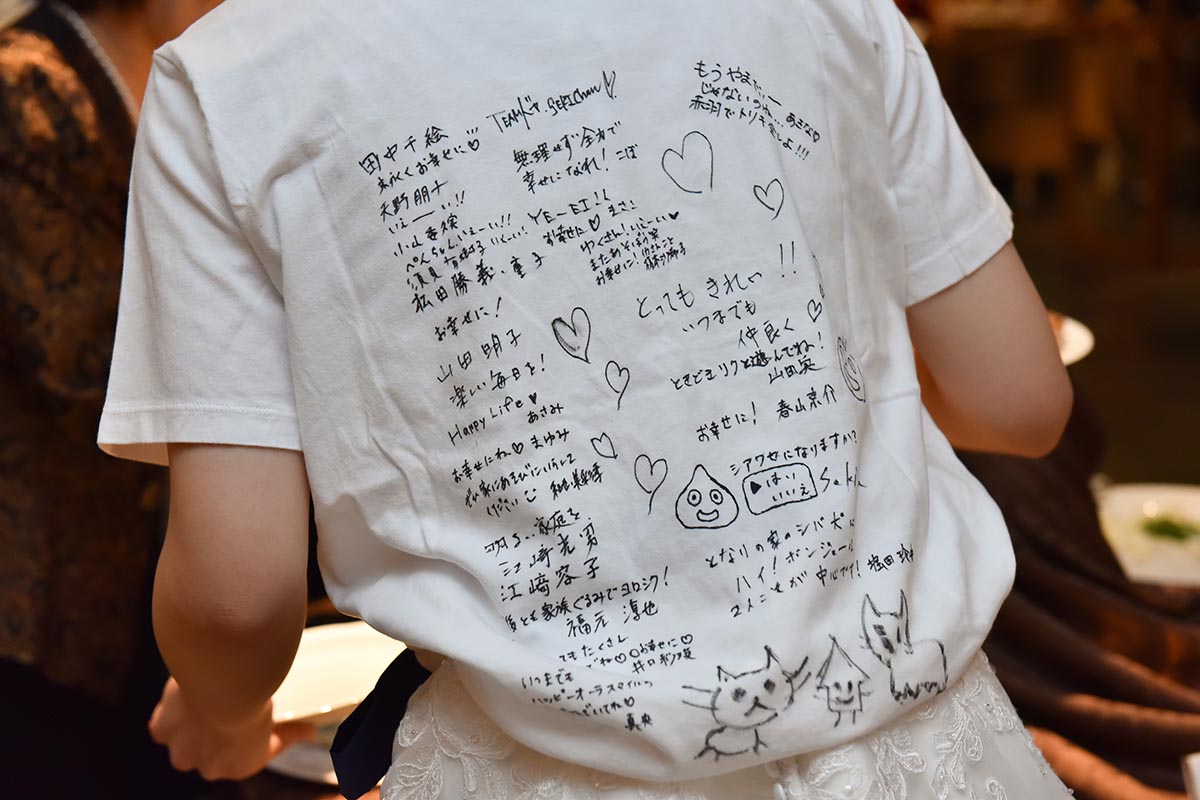 田中千絵
末永くお幸せに♡
天野朋
いえーい!!
小山
ぺんちゃんいぇーい!!
松田勝義・重子
お幸せに!
山田明子
楽しい毎日を!
Happy Life♡
あさみ
お幸せにね♡ まゆみ
ぜひ家にあそびにいらして
ください
明るい家庭を
江﨑光男
江﨑容子
後とも家族ぐるみでヨロシク!
福元 淳也
できたくさん
お幸せに♡
井口
いつまでも
ハッピーオーラスマイルの
でいてね♡
真央
TEAM SEKIchan♡
無理せず全力で
幸せになれ! こぼ
YE-EI!!
お幸せに♡ まさこ
ゆくさん!いぇーい♥
また
お幸せに!
もうやまだ
じゃないのか… あきな♡
赤羽でトリキ
よ!!!
とっても きれい !!
いつまでも
仲良く
ときどきリクと遊んでね!
山田
お幸せに! 春山
シアワせになりますか?
▶はい
いいえ
Saki
となりの家のシバ
ハイ!ボンジョール
2人ことが 中心です! 塩田